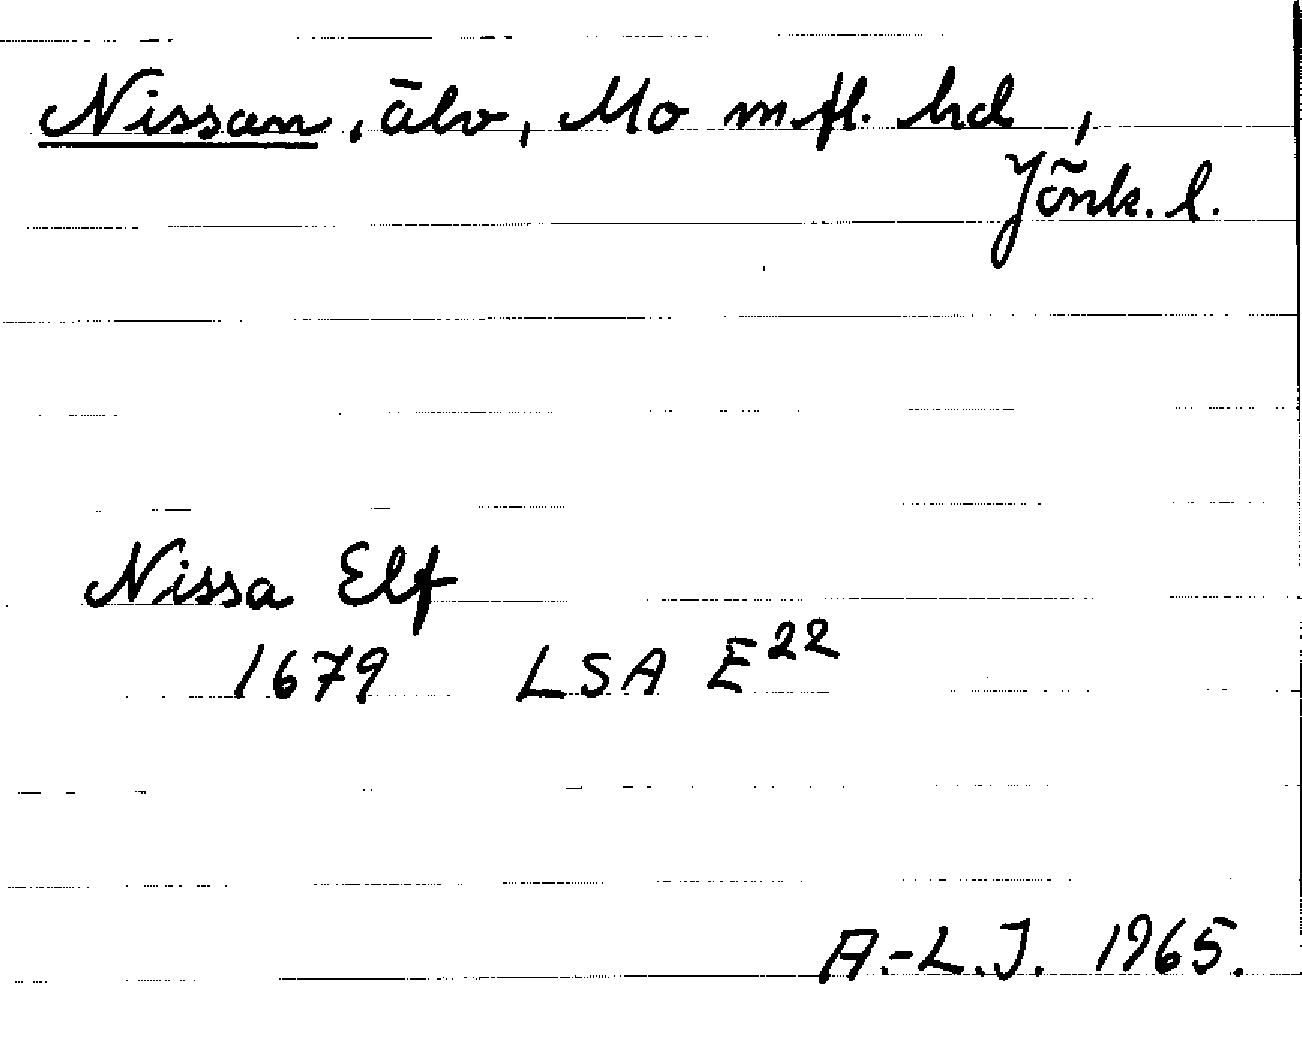 Nissan, älv, Mo m.fl. hd,
Jönk. l.
Nissa Elf
1679 LSA E22
A.-L.J. 1965.